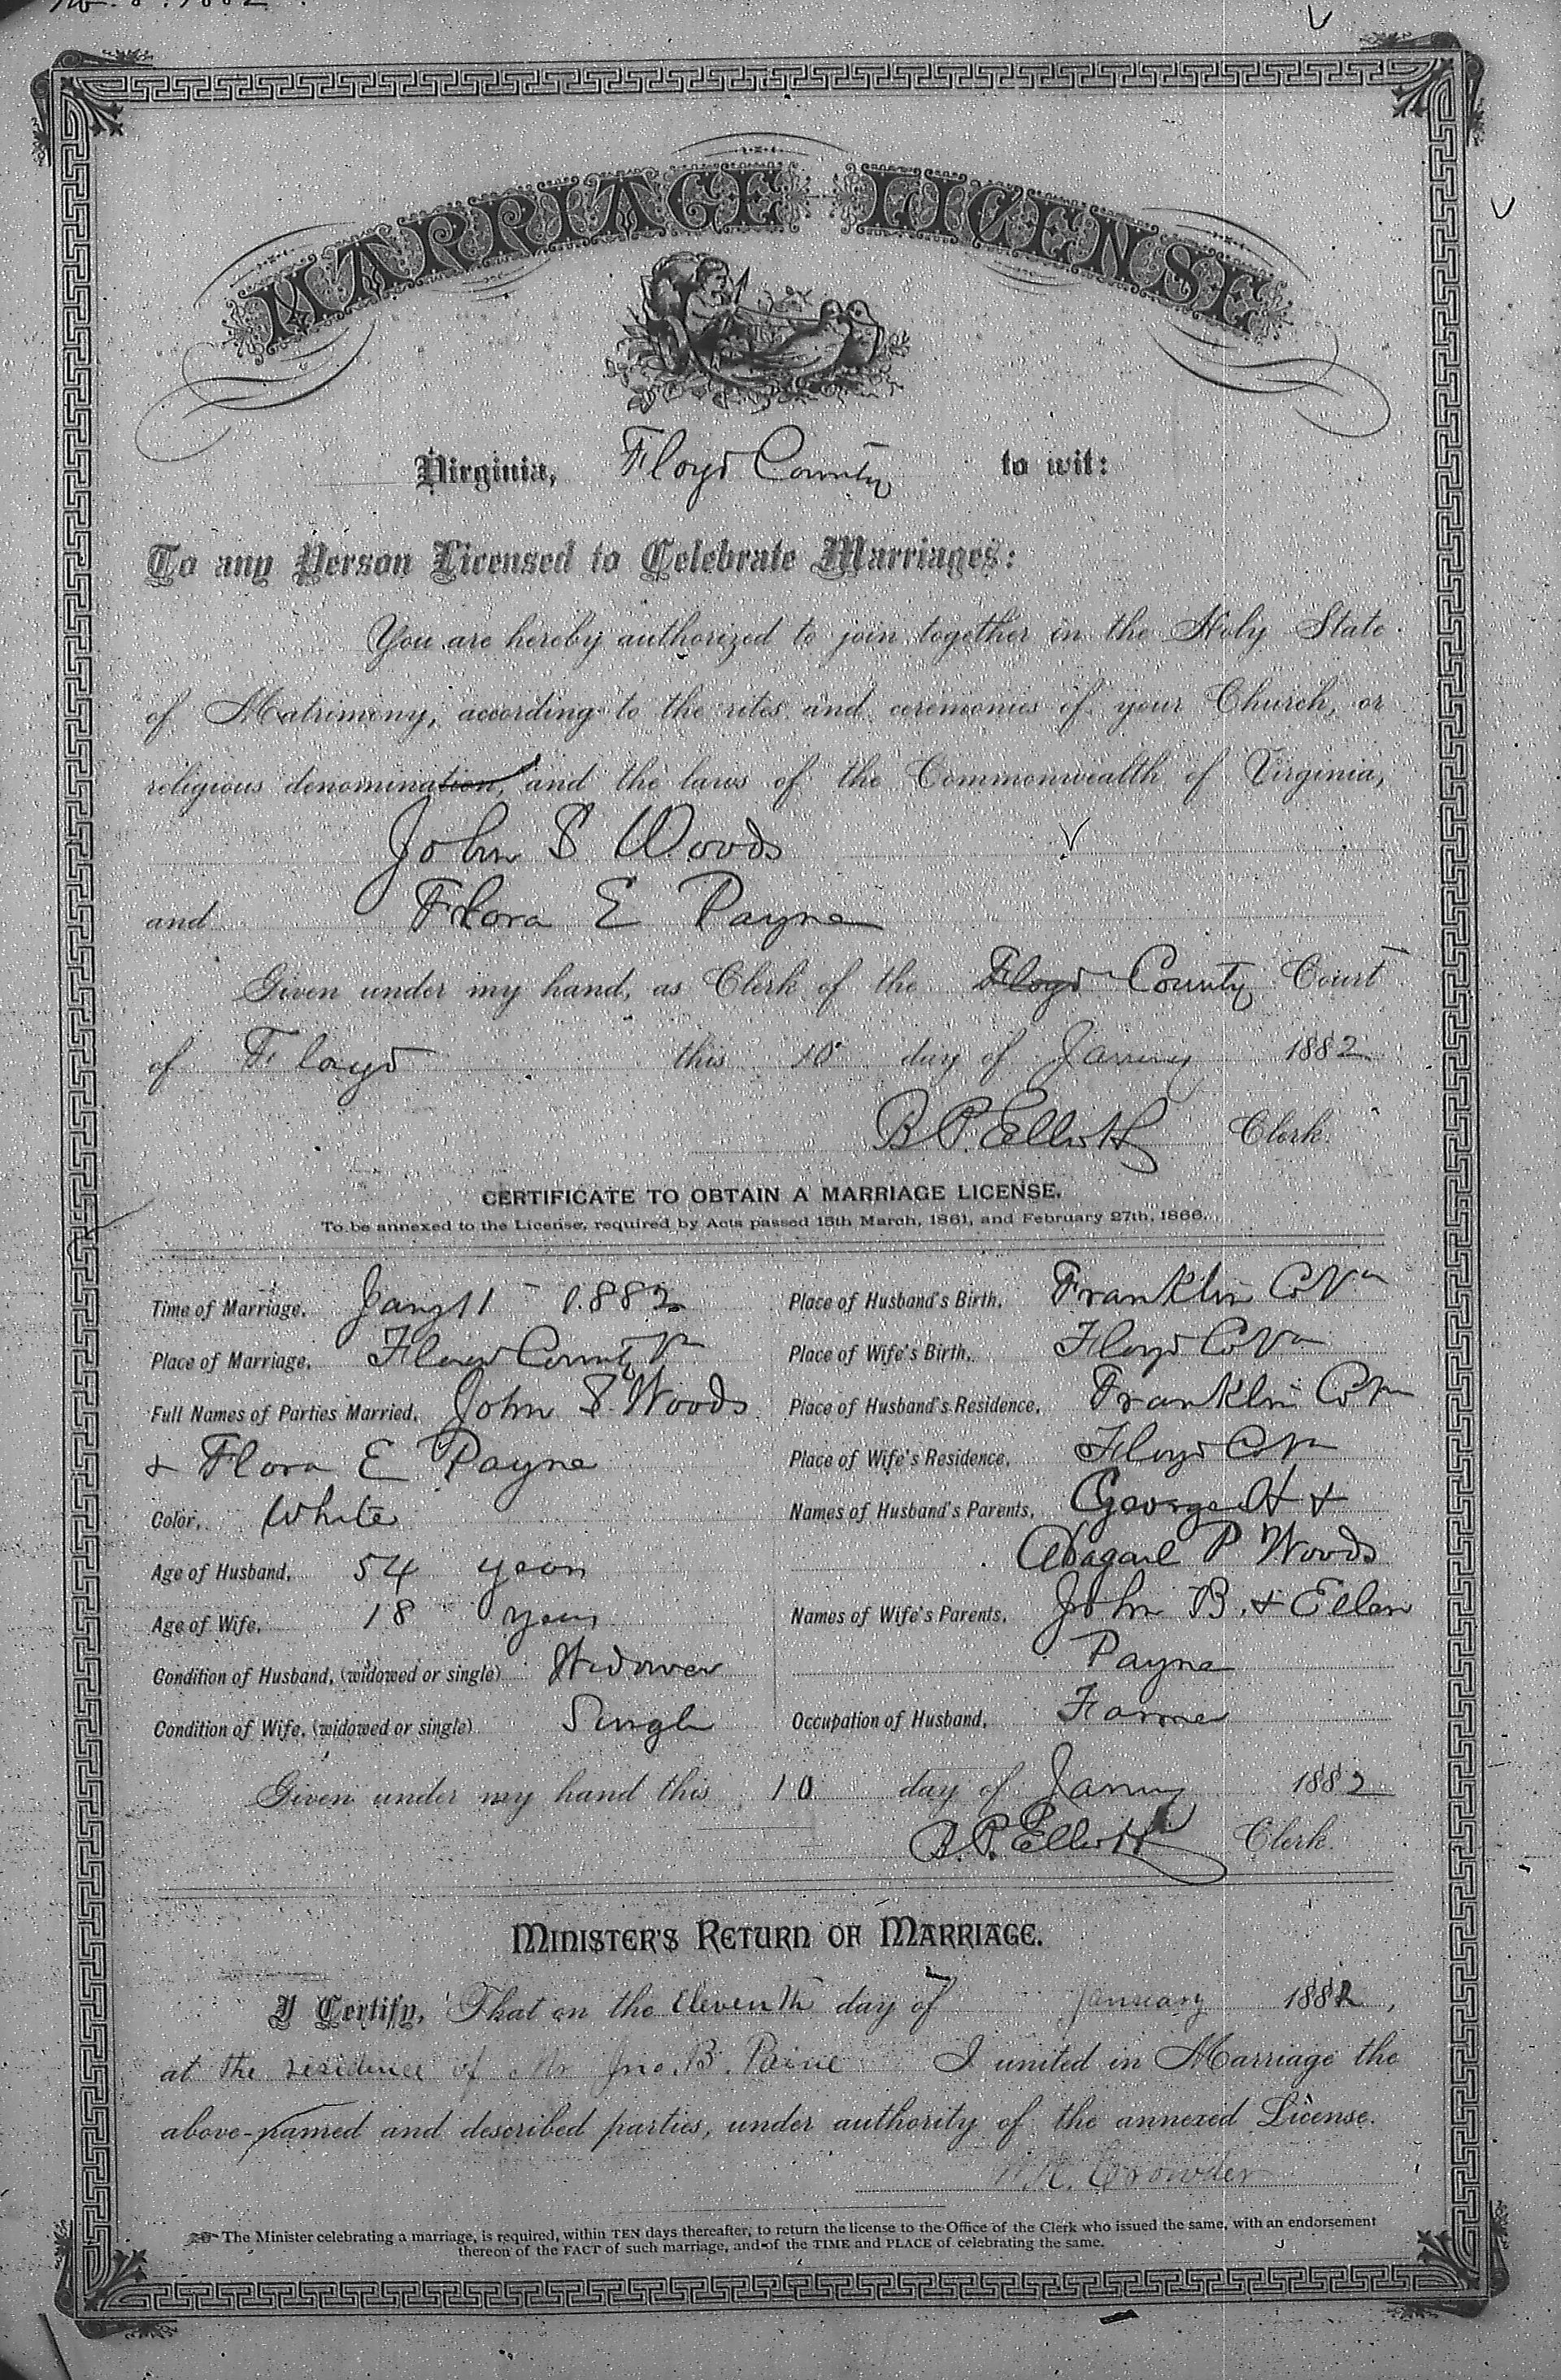 1882
MARRIAGE LICENSE
Virginia, Floyd County to wit:
To any Person Licensed to Celebrate Marriages:
You are hereby authorized to join together in the Holy State
of Matrimony, according to the rites and ceremonies of your Church, or
religious denomination, and the laws of the Commonwealth of Virginia,
John S Woods
and Flora E Payne
Given under my hand, as Clerk of the Floyd County Court
of Floyd this 10 day of January 1882
B P. Elliott Clerk.
CERTIFICATE TO OBTAIN A MARRIAGE LICENSE.
To be annexed to the License, required by Acts passed 15th March, 1861, and February 27th, 1866.
Time of Marriage, Jany 11 1882
Place of Marriage, Floyd County Va
Full Names of Parties Married, John S. Woods
+ Flora E Payne
Color, White
Age of Husband, 54 years
Age of Wife, 18 years
Condition of Husband, (widowed or single) Widower
Condition of Wife, (widowed or single) Single
Place of Husband's Birth, Franklin Co Va
Place of Wife's Birth, Floyd Co Va
Place of Husband's Residence, Franklin Co Va
Place of Wife's Residence, Floyd Co Va
Names of Husband's Parents, George H +
Abagail P Woods
Names of Wife's Parents, John B. + Ellen
Payne
Occupation of Husband, Farmer
Given under my hand this 10 day of January 1882
B. P. Elliott Clerk.
MINISTER'S RETURN OF MARRIAGE.
I Certify, That on the Eleventh day of January 1882,
at the residence of Mr Jno. B. Paine I united in Marriage the
above-named and described parties, under authority of the annexed License.
Crowder
The Minister celebrating a marriage, is required, within TEN days thereafter, to return the license to the Office of the Clerk who issued the same, with an endorsement
thereon of the FACT of such marriage, and of the TIME and PLACE of celebrating the same.